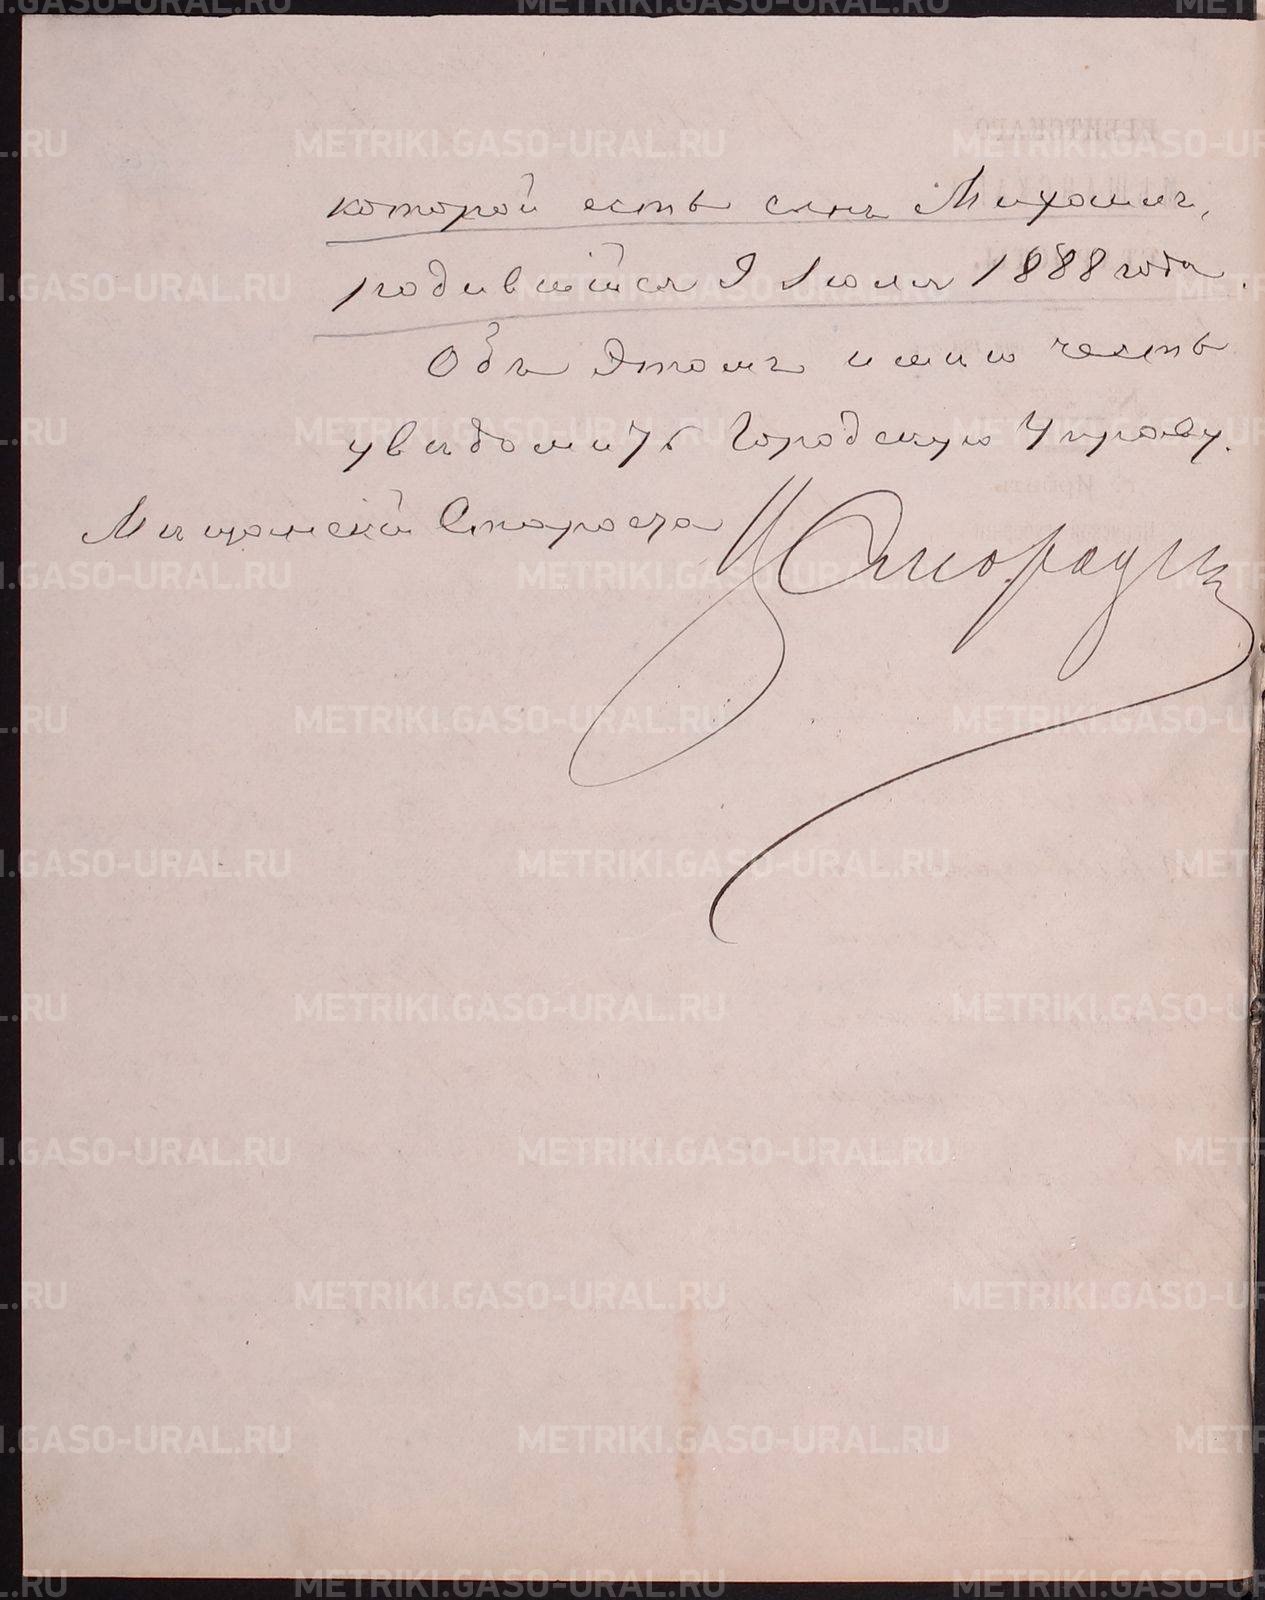 которой есть сынъ Михаилъ,
родившійся 9 Іюля 1888 года.
Объ этомъ имѣю честь
увѣдомить Городскую Управу.
Мѣщанскій Староста
METRIKI.GASO-URAL.RU